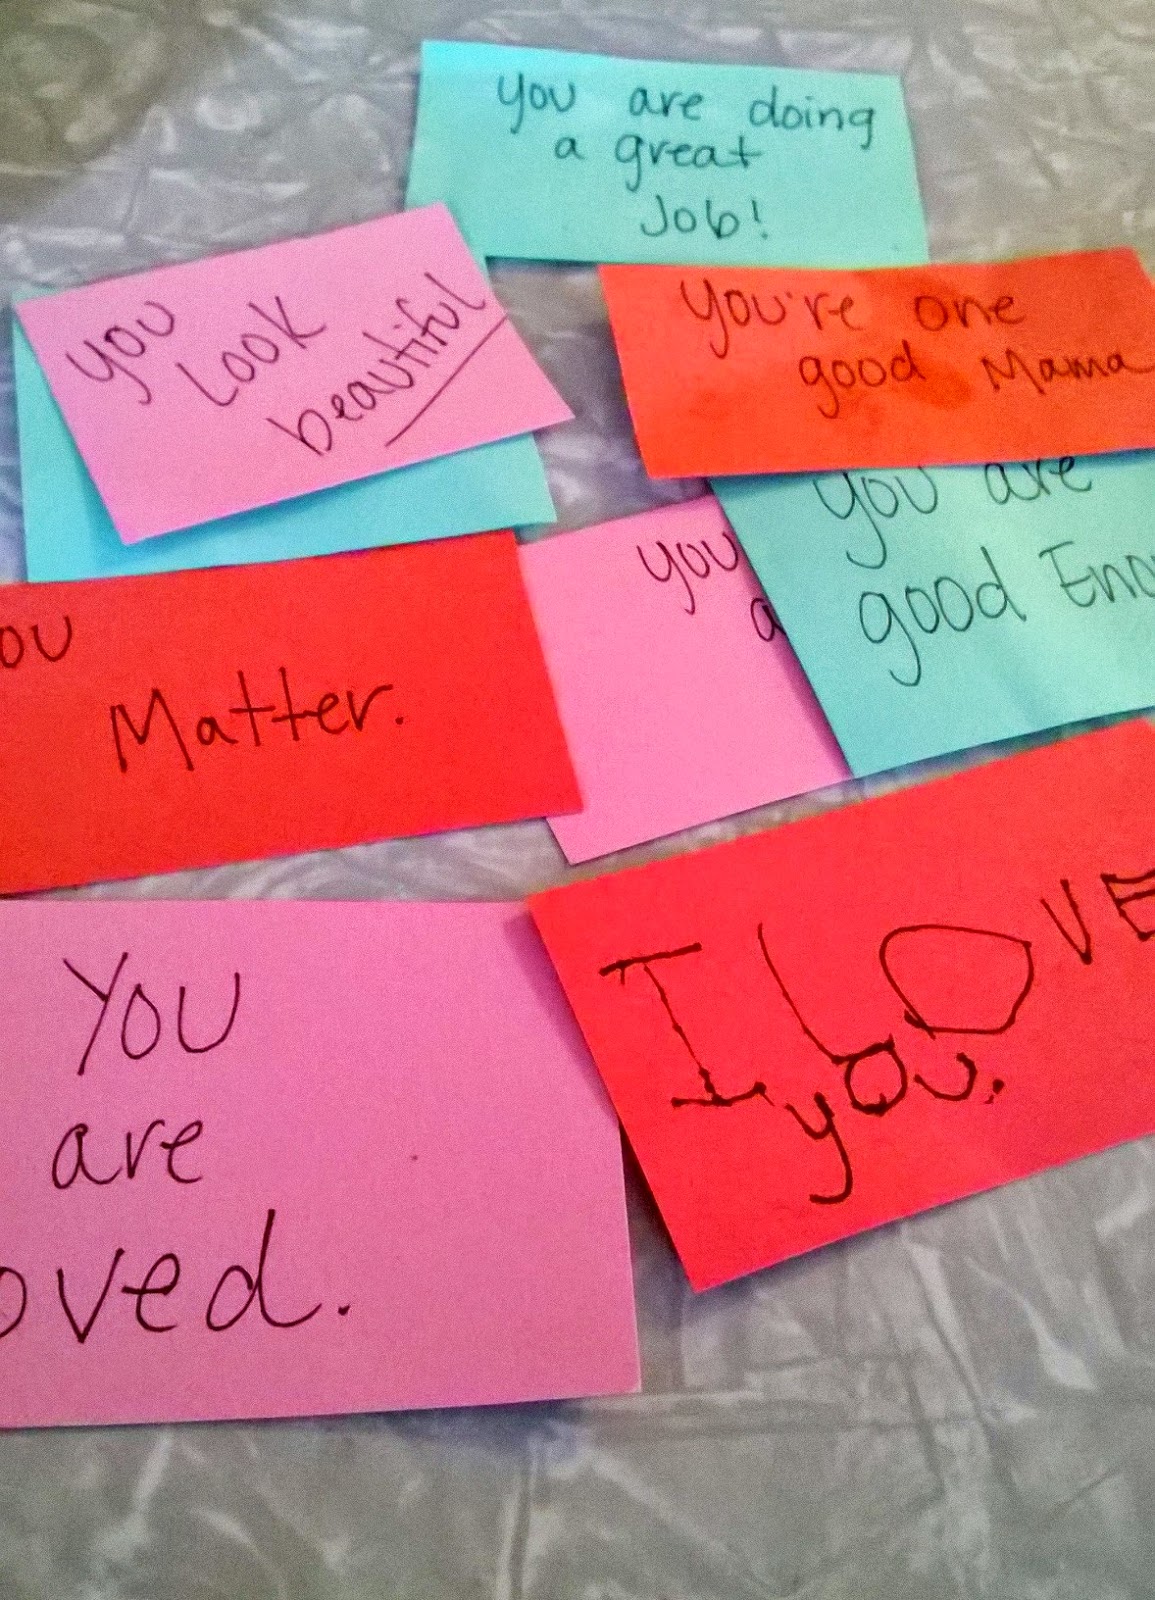 you are doing
a great
Job!
you
Look
beautiful
you're one
good Mama
you are
good
you
ou
Matter.
You
are
oved.
I LOVE
you.